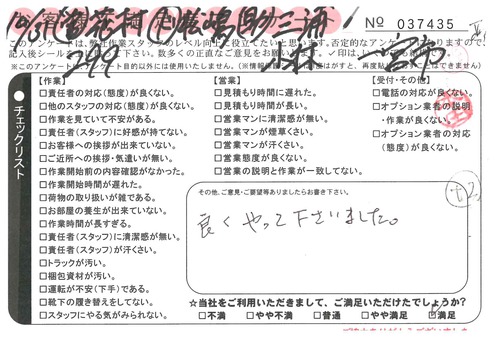 No 037435
このアンケートは、弊社作業スタッフのレベル向上に役立てたいと思います。否定的なアンケートがありましたので、
記入後シールを貼って下さい。数多くの正直なご意見をお聞かせ下さい。✓印は、いくつでも結構です。
※このアンケートは、アンケート目的以外には使用いたしません。
チェックリスト
【作業】
□責任者の対応(態度)が良くない。
□他のスタッフの対応(態度)が良くない。
□作業を見ていて不安がある。
□責任者(スタッフ)に好感が持てない。
□お客様への挨拶が出来ていない。
□ご近所への挨拶・気遣いが無い。
□作業開始前の内容確認がなかった。
□作業開始時間が遅れた。
□荷物の取り扱いが雑である。
□お部屋の養生が出来ていない。
□作業時間が長すぎる。
□責任者(スタッフ)に清潔感が無い。
□責任者(スタッフ)が汗くさい。
□トラックが汚い。
□梱包資材が汚い。
□運転が不安(下手)である。
□靴下の履き替えをしてない。
□スタッフにやる気がみられない。
【営業】
□見積もり時間に遅れた。
□見積もり時間が長い。
□営業マンに清潔感が無い。
□営業マンが煙草くさい。
□営業マンが汗くさい。
□営業態度が良くない。
□営業の説明と作業が一致してない。
【受付・その他】
□電話の対応が良くない。
□オプション業者の説明
・作業が良くない。
□オプション業者の対応
(態度)が良くない。
その他、ご意見・ご要望等ありましたらお書き下さい。
良くやって下さいました。
☆当社をご利用いただきまして、ご満足いただけたでしょうか?
□不満 □やや不満 □普通 □やや満足 ☑満足